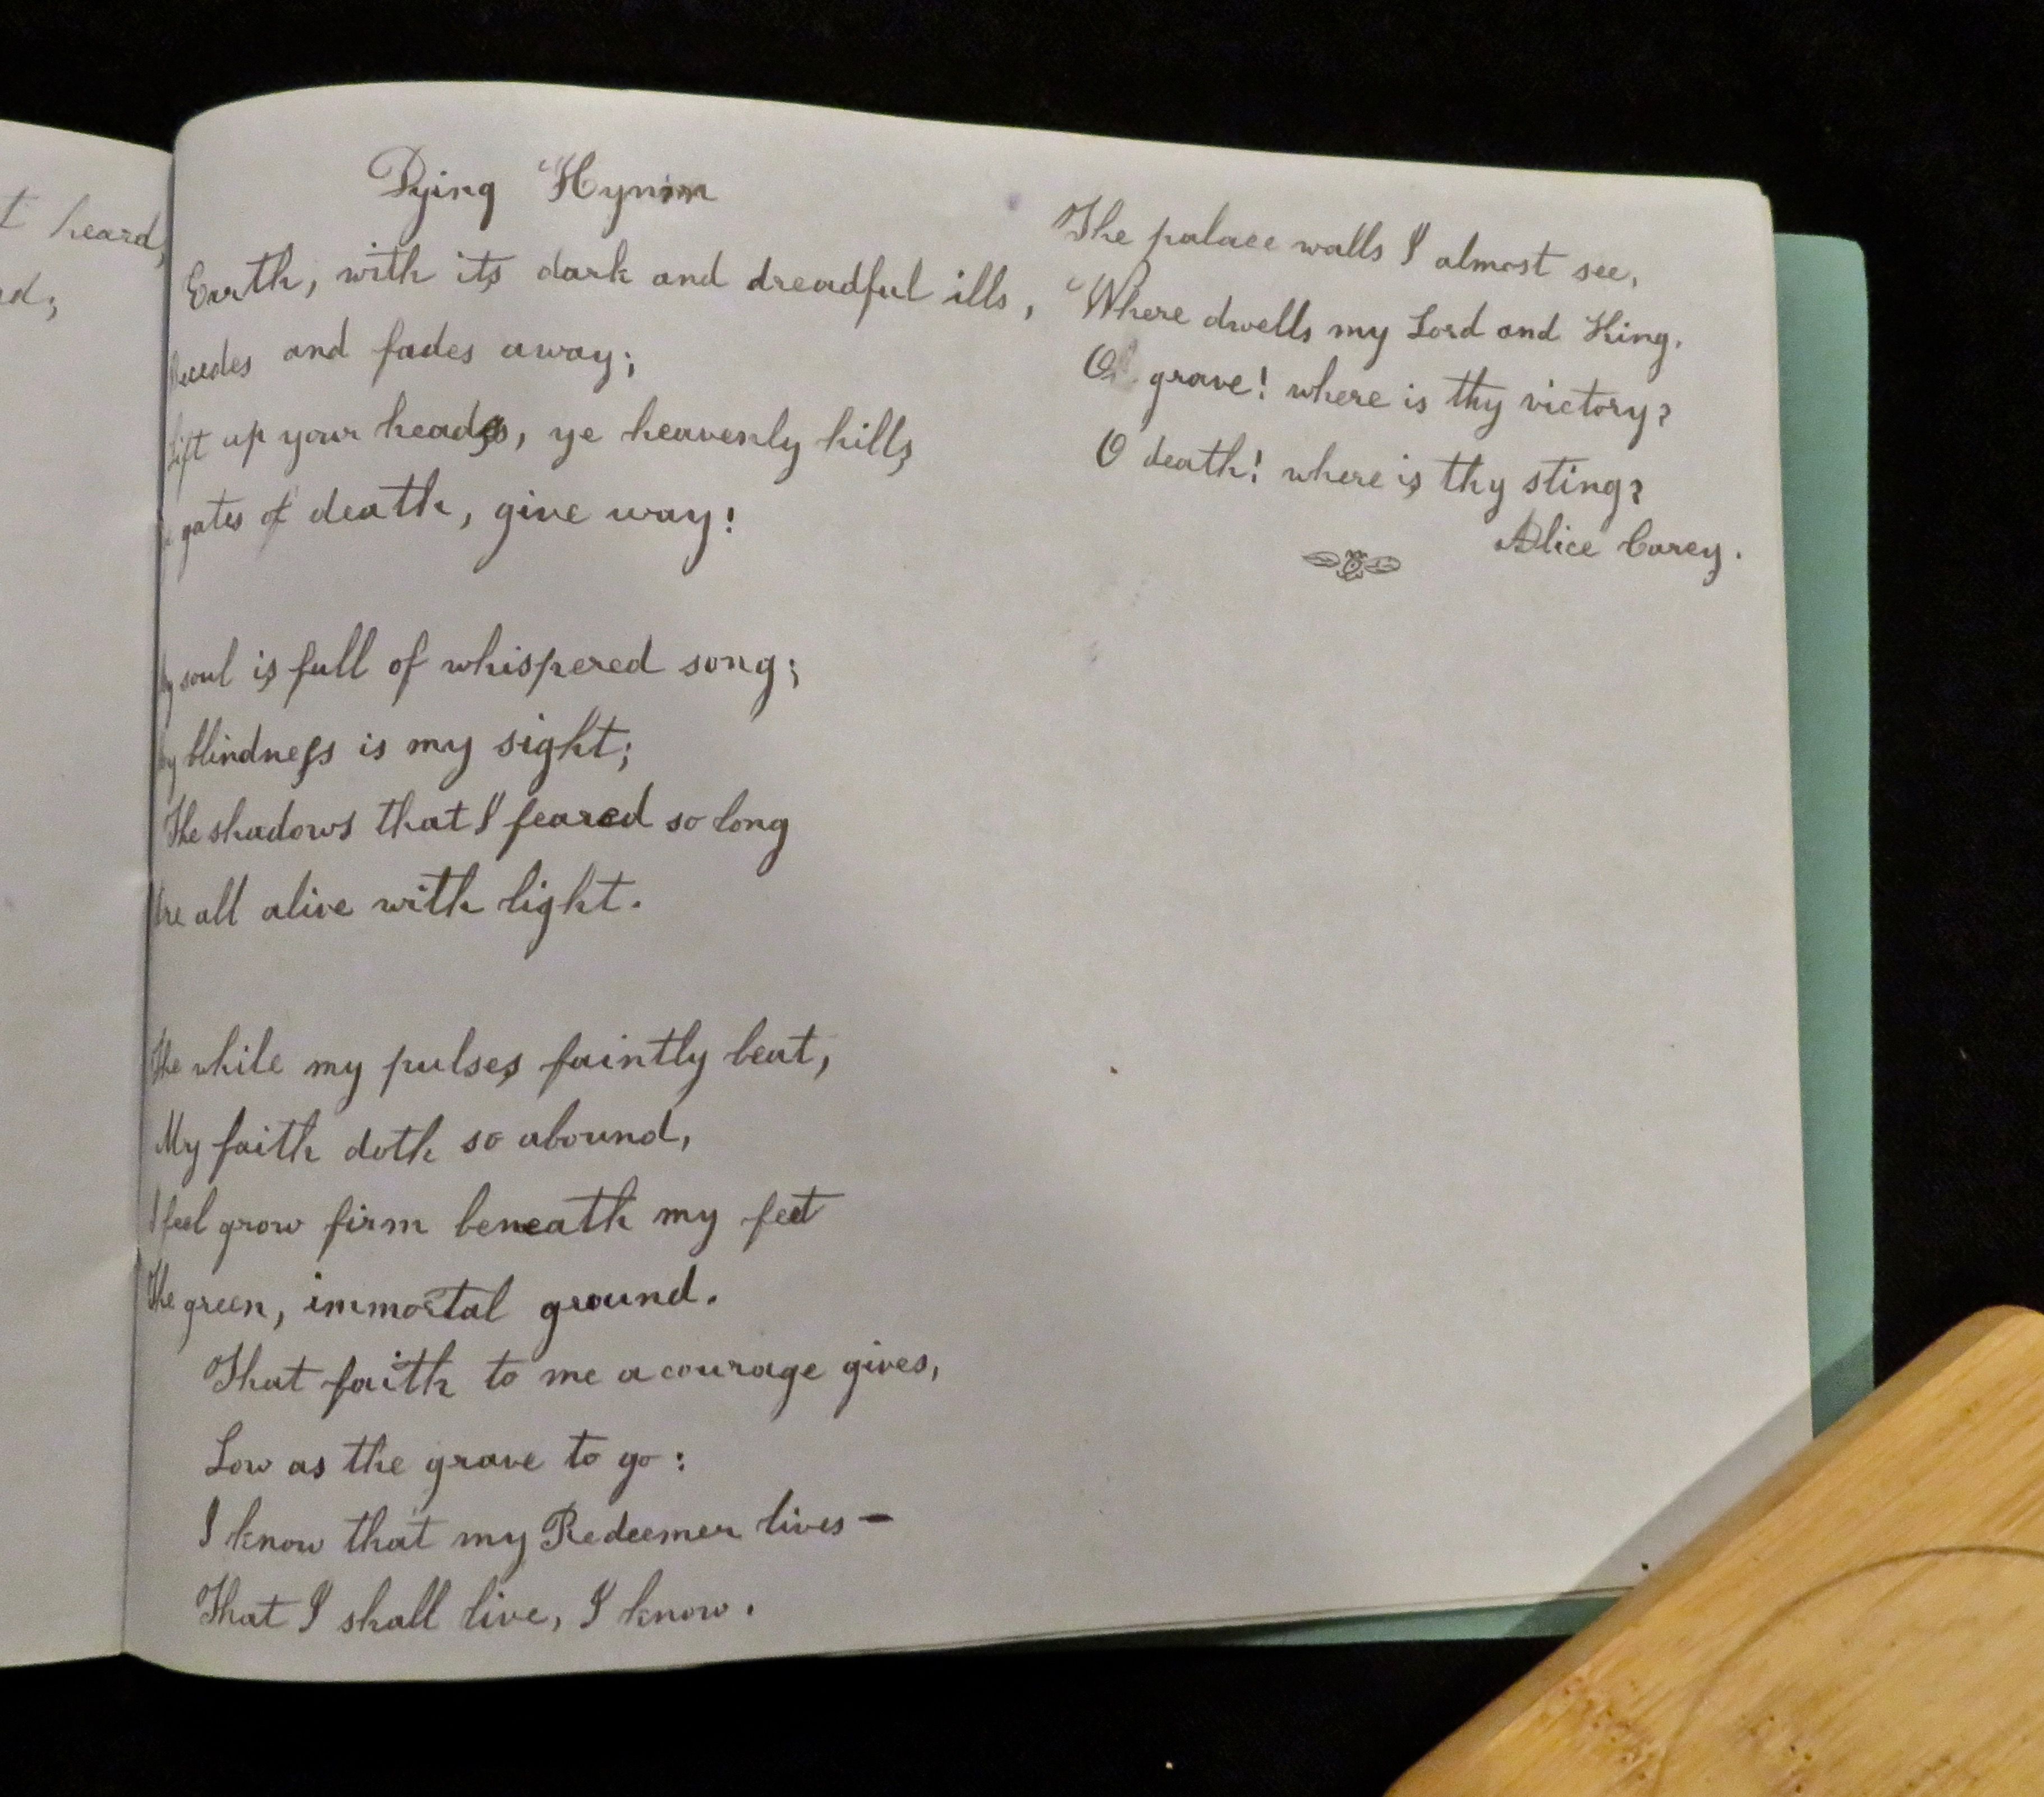 t heard,
Dying Hymn
Earth, with its dark and dreadful ills,
Recedes and fades away;
Lift up your heads, ye heavenly hills,
Ye gates of death, give way!
My soul is full of whispered song;
My blindness is my sight;
The shadows that I feared so long
Are all alive with light.
The while my pulses faintly beat,
My faith doth so abound,
I feel grow firm beneath my feet
The green, immortal ground.
That faith to me a courage gives,
Low as the grave to go:
I know that my Redeemer lives —
That I shall live, I know.
The palace walls I almost see,
Where dwells my Lord and King.
O grave! where is thy victory?
O death! where is thy sting?
Alice Carey.